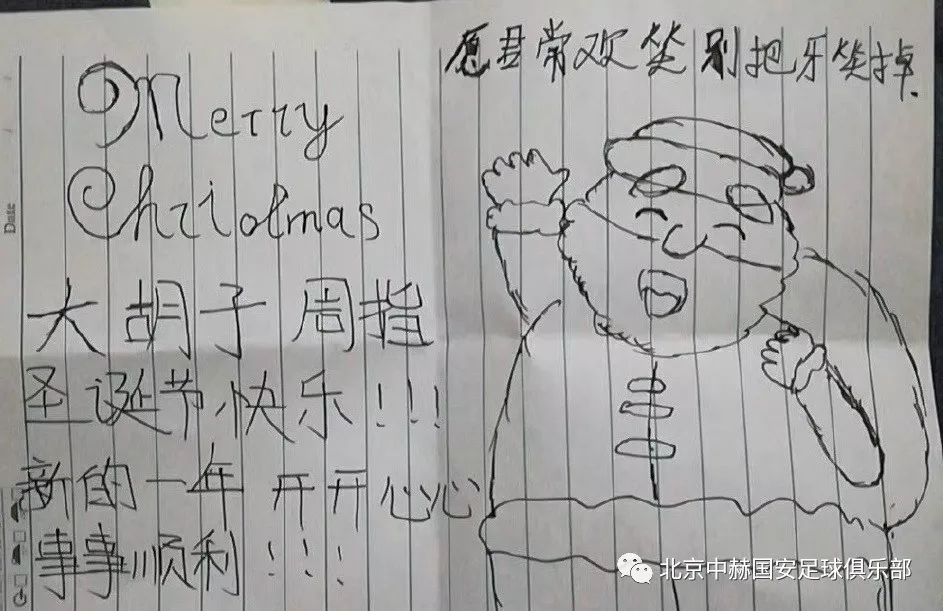 Date
Merry
Christmas
大胡子周指
圣诞节快乐!!!
新的一年 开开心心
事事顺利!!!
愿君常欢笑别把牙笑掉.
北京中赫国安足球俱乐部